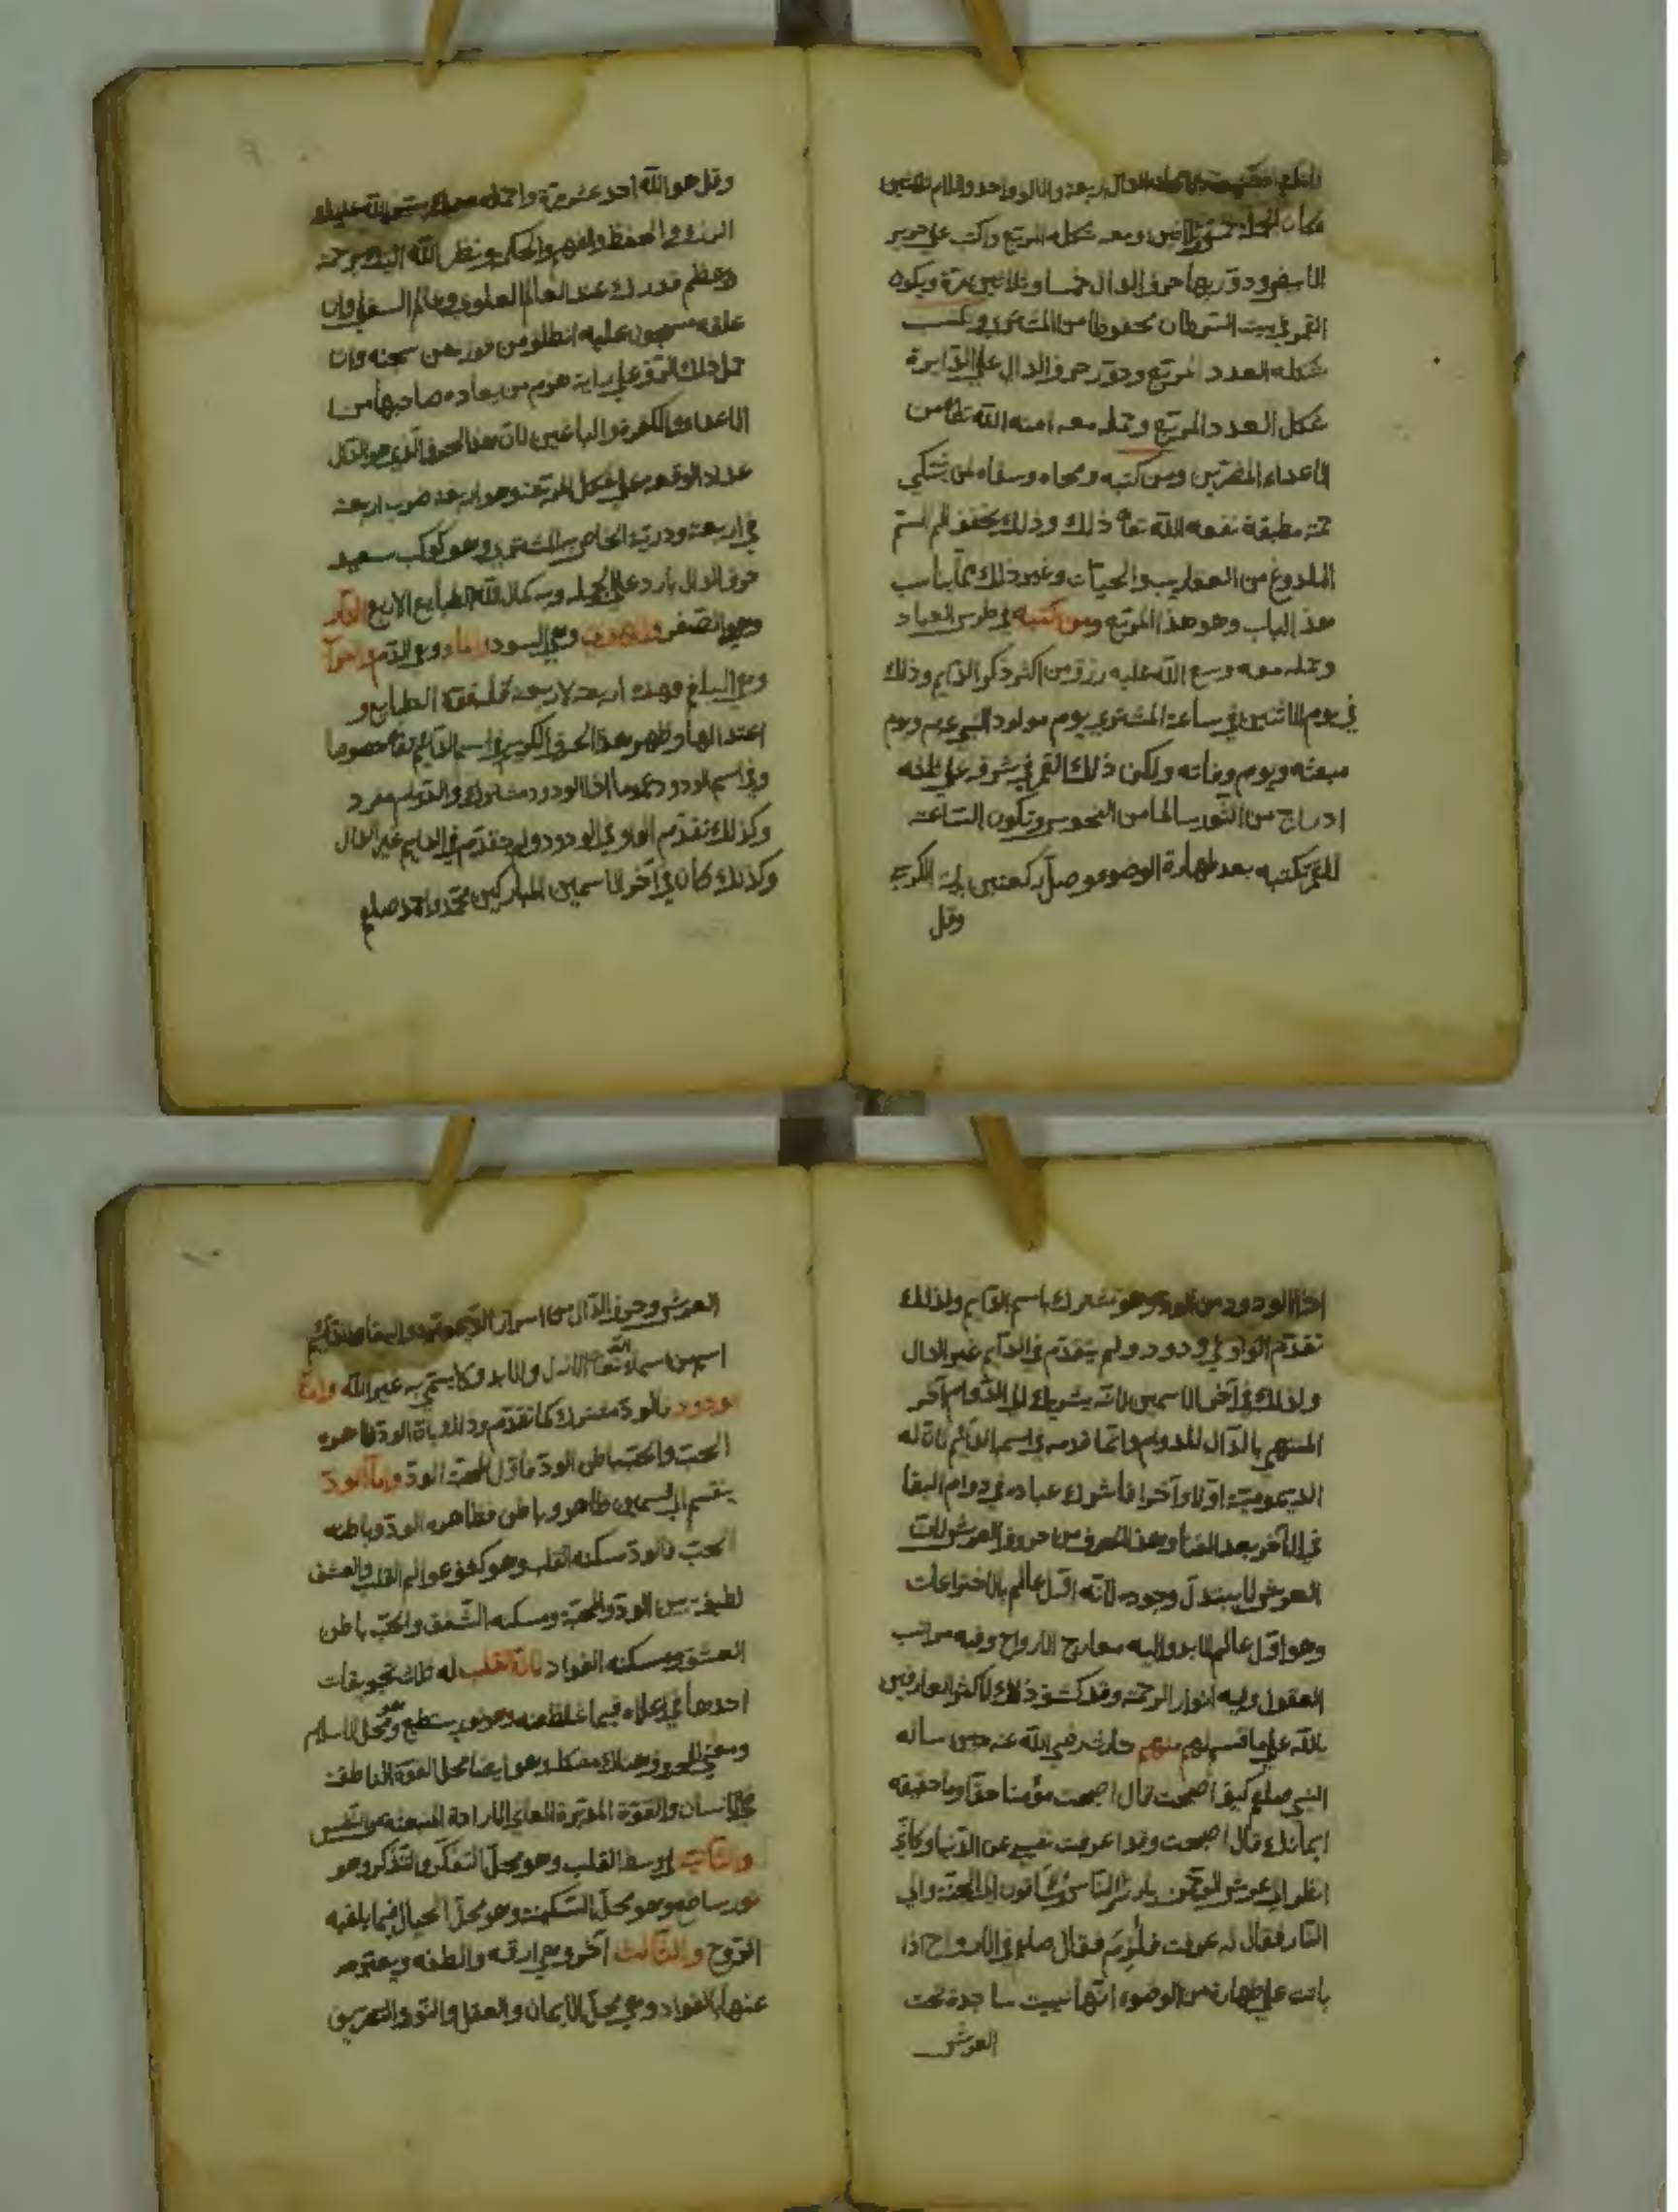 الدال اربعة والالف واحد واللام ثلاثين
فكان الجملة خمسة وثلاثين ومعه شكله المربع واكتب على حرير
الابيض ودوّر بها حرف الدال خمسا وثلاثين مرة ويكون
القمر في بيت السرطان محفوظا من المشتري وكتب
شكله العدد المربع ودوّر حرف الدال على الدايرة
شكل العدد المربع وحمله معه امنه الله تعا من
الاعداء المضرين ومن كتبه ومحاه وسقاه لمن يشتكي
حمّة مطبقة نفعه الله تعا ذلك وذلك يخفف الم السّم
الملدوغ من العقاريب والحيات وغير ذلك ممّا يناسب
هذا الباب وهو هذا المربع ومن كتبه في طرس العباد
وحمله معه وسع الله عليه رزق من اكثر ذكر الدّايم وذلك
في يوم الاثنين في ساعة المشتري يوم مولود النبي عم ويوم
مبعثه ويوم وفاته ولكن ذلك القمر في شرفه على ثلثه
ادراج من الثور سالما من النحوس وتكون الساعة
للقمر تكتبه بعد طهارة الوضوء وصلّ ركعتين باية الكرسي
وقل
وقل هو الله احد عشر مرة واحمله معك يستر الله عليك
الرزق والحفظ والفهم والحكم وينظر الله اليك برحمة
وعظم قدرك عند العالم العلوي وعالم السفلي وان
علقه مسجون عليه انطلق من فوره من سجنه وان
حمل ذلك الوفق على راية هزم من يعاده صاحبها من
الاعداء والكفرة والباغين لان هذا الحرف الذي هو الدال
عداد الوقعه على شكل المربعة وهو اربعة ضرب اربعة
في اربعة ودرية الخاص بالمشتري وهو كوكب سعيد
حرف الدال بارد على الجملة وبه كمال الله الطبايع الاربع النار
وهي الصفر والهوى وهي السودا والماء وهي الدم
وهي البلغم وهذه اربعة لاربعة فلتقوّة الطبايع و
اعتدالها وظهر هذا الحرف الكريم في اسم الدّايم تعا خصوصا
وفي اسم الودود عموما اذا الودود مشترك والدّوام مفرد
وكذلك تقدّم الواو في الودود ولم يتقدّم في الدايم غير الدال
وكذلك كان في آخر الاسمين المباركين محمّد واحمد صلعم
اذا الودود من الود وهو مشترك باسم الدّايم ولذلك
تقدّم الواو في ودود ولم يتقدّم في الدّايم غير الدال
ولذلك في آخر الاسمين لانه يشير الى الدّوام آخر
المنتهي بالدّال للدوام وانما قدمه في اسم الدّايم لان له
الديموميّة اولا وآخرا فاشرك عباده في دوام البقا
في الآخر بعد الفنا وهذا الحرف من حروف العرش لان
العرش لا يبتدل وجوده لانه اوّل عالم بالاختراعات
وهو اوّل عالم الابد واليه معارج الارواح وفيه مراتب
العقول وفيه انوار الرحمة وقد كشف ذلك لاكثر العارفين
بالله على ما قسم لهم منهم حارث رضي الله عنه حين ساله
النبي صلعم كيف اصبحت قال اصبحت مؤمنا حقّا وما حقيقه
ايمانك قال اصبحت وقد اعرفت نفسي عن الدّنيا وكاني
انظر الى عرش الرحمن بارزا والنّاس يساقون الى الجنّة والى
النّار فقال له عرفت فالزم فقال صلعم في الارواح اذا
باتت على طهارة من الوضوء انّها تبيت ساجدة تحت
العرش
العرش وحرف الدّال من اسرار الديموميّة والبقا
اسم من اسماء الله تعا الازل والابد وكا يسمّي به غير الله وان
الودود بالودّ مشترك كما تقدّم وذلك بان الودّ ظاهره
الحبّ والحبّ باطن الودّ فاوّل المحبّة الودّ وامّا الودّ
ينقسم الى قسمين ظاهر وباطن فظاهره الودّ وباطنه
الحبّ فالودّ مسكنه القلب وهو كشف عوالم القلب والعشق
لطيفة بين الودّ والمحبّة ومسكنه الشّغف والحبّ باطن
العشق ومسكنه الفواد لانّ القلب له ثلث تجويفات
احدها في اعلاه فيما غلظ منه وهو نور يسطع وهو محلّ الاسلام
ومعنى الحروف هناك مشكل وهو ايضا محلّ القوة الناطقة
في الانسان والقوّة المدبّرة لمعاني الارادة المنبعثة من النّفس
والثّانية في وسط القلب وهو محلّ التفكّر والتّذكر وهو
نور ساطع وهو محلّ السّكينة وهو محلّ الخيال فيما يلقيه
الرّوح والثّالث آخره وهي ارقّه والطفه ويعبّر
عنها بالفواد وهي محلّ الايمان والعقل والنّور والتعريف